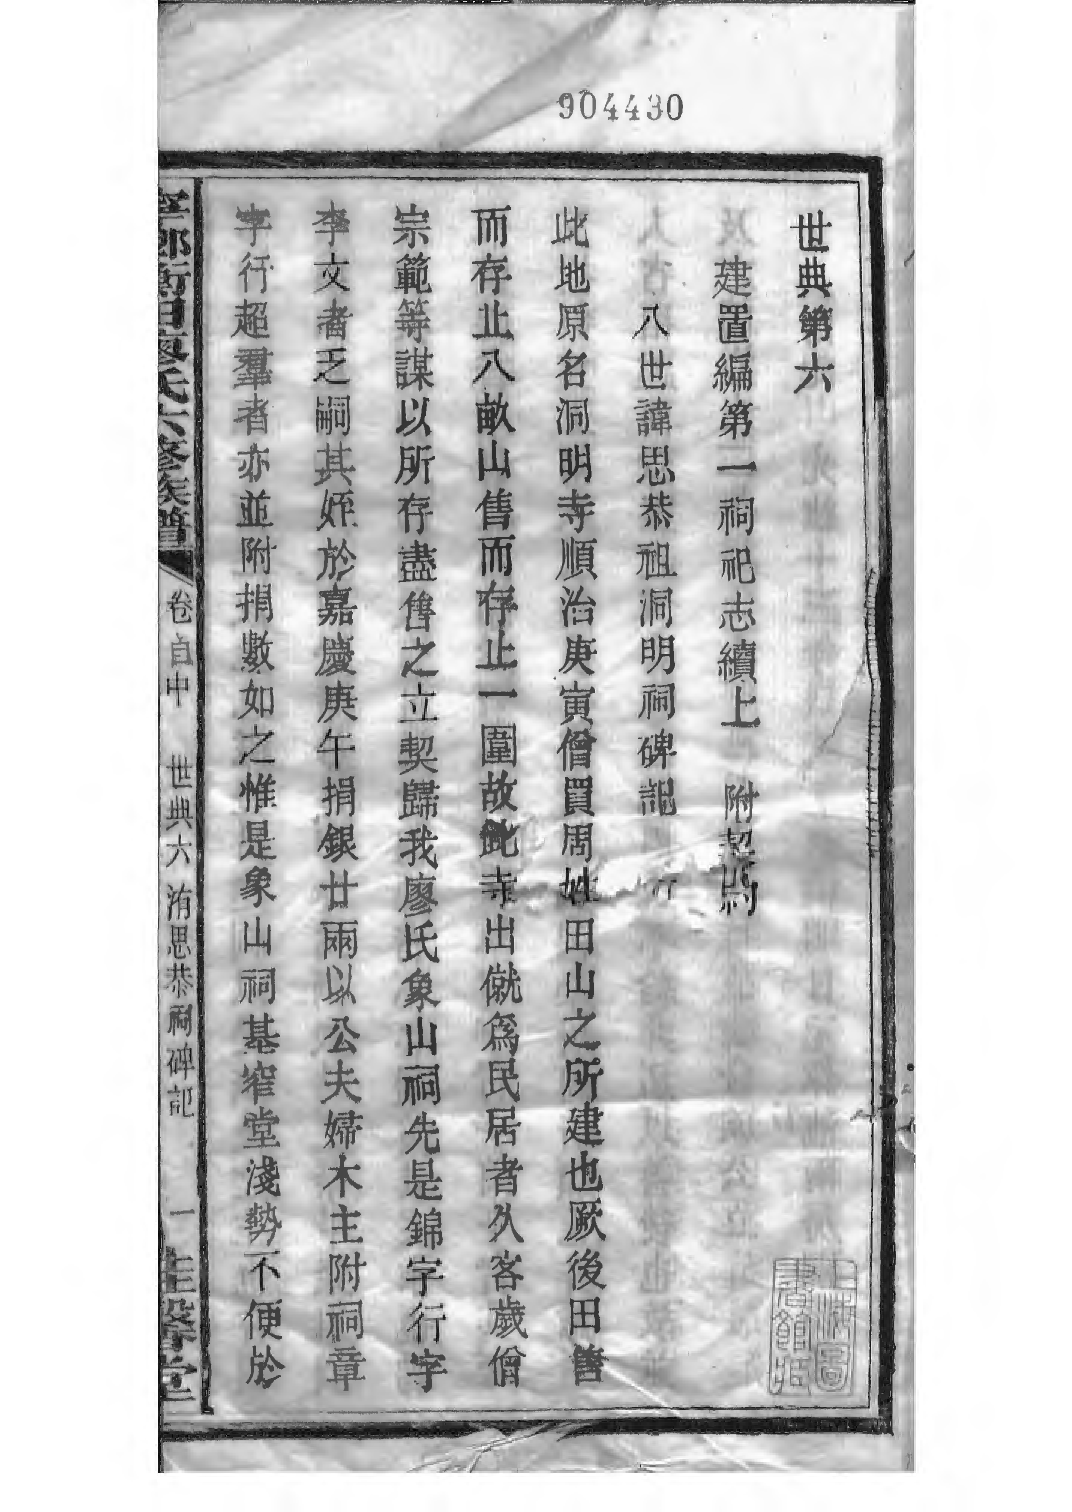 904430
世典第六
建置編第二祠祀志續上 附契約
八世諱思恭祖洞明祠碑記
此地原名洞明寺順治庚寅僧買周姓田山之所建也厥後田售
而存止八畝山售而存止一圍故此寺出僦為民居者久客歲僧
宗範等謀以所存盡售之立契歸我廖氏象山祠先是錦字行字
李文者乏嗣其姪於嘉慶庚午捐銀廿兩以公夫婦木主附祠章
字行超羣者亦並附捐數如之惟是象山祠基窄堂淺勢不便於
寧鄉衡田廖氏六修族譜
卷首中 世典六 洧思恭祠碑記 一
上海圖書館藏